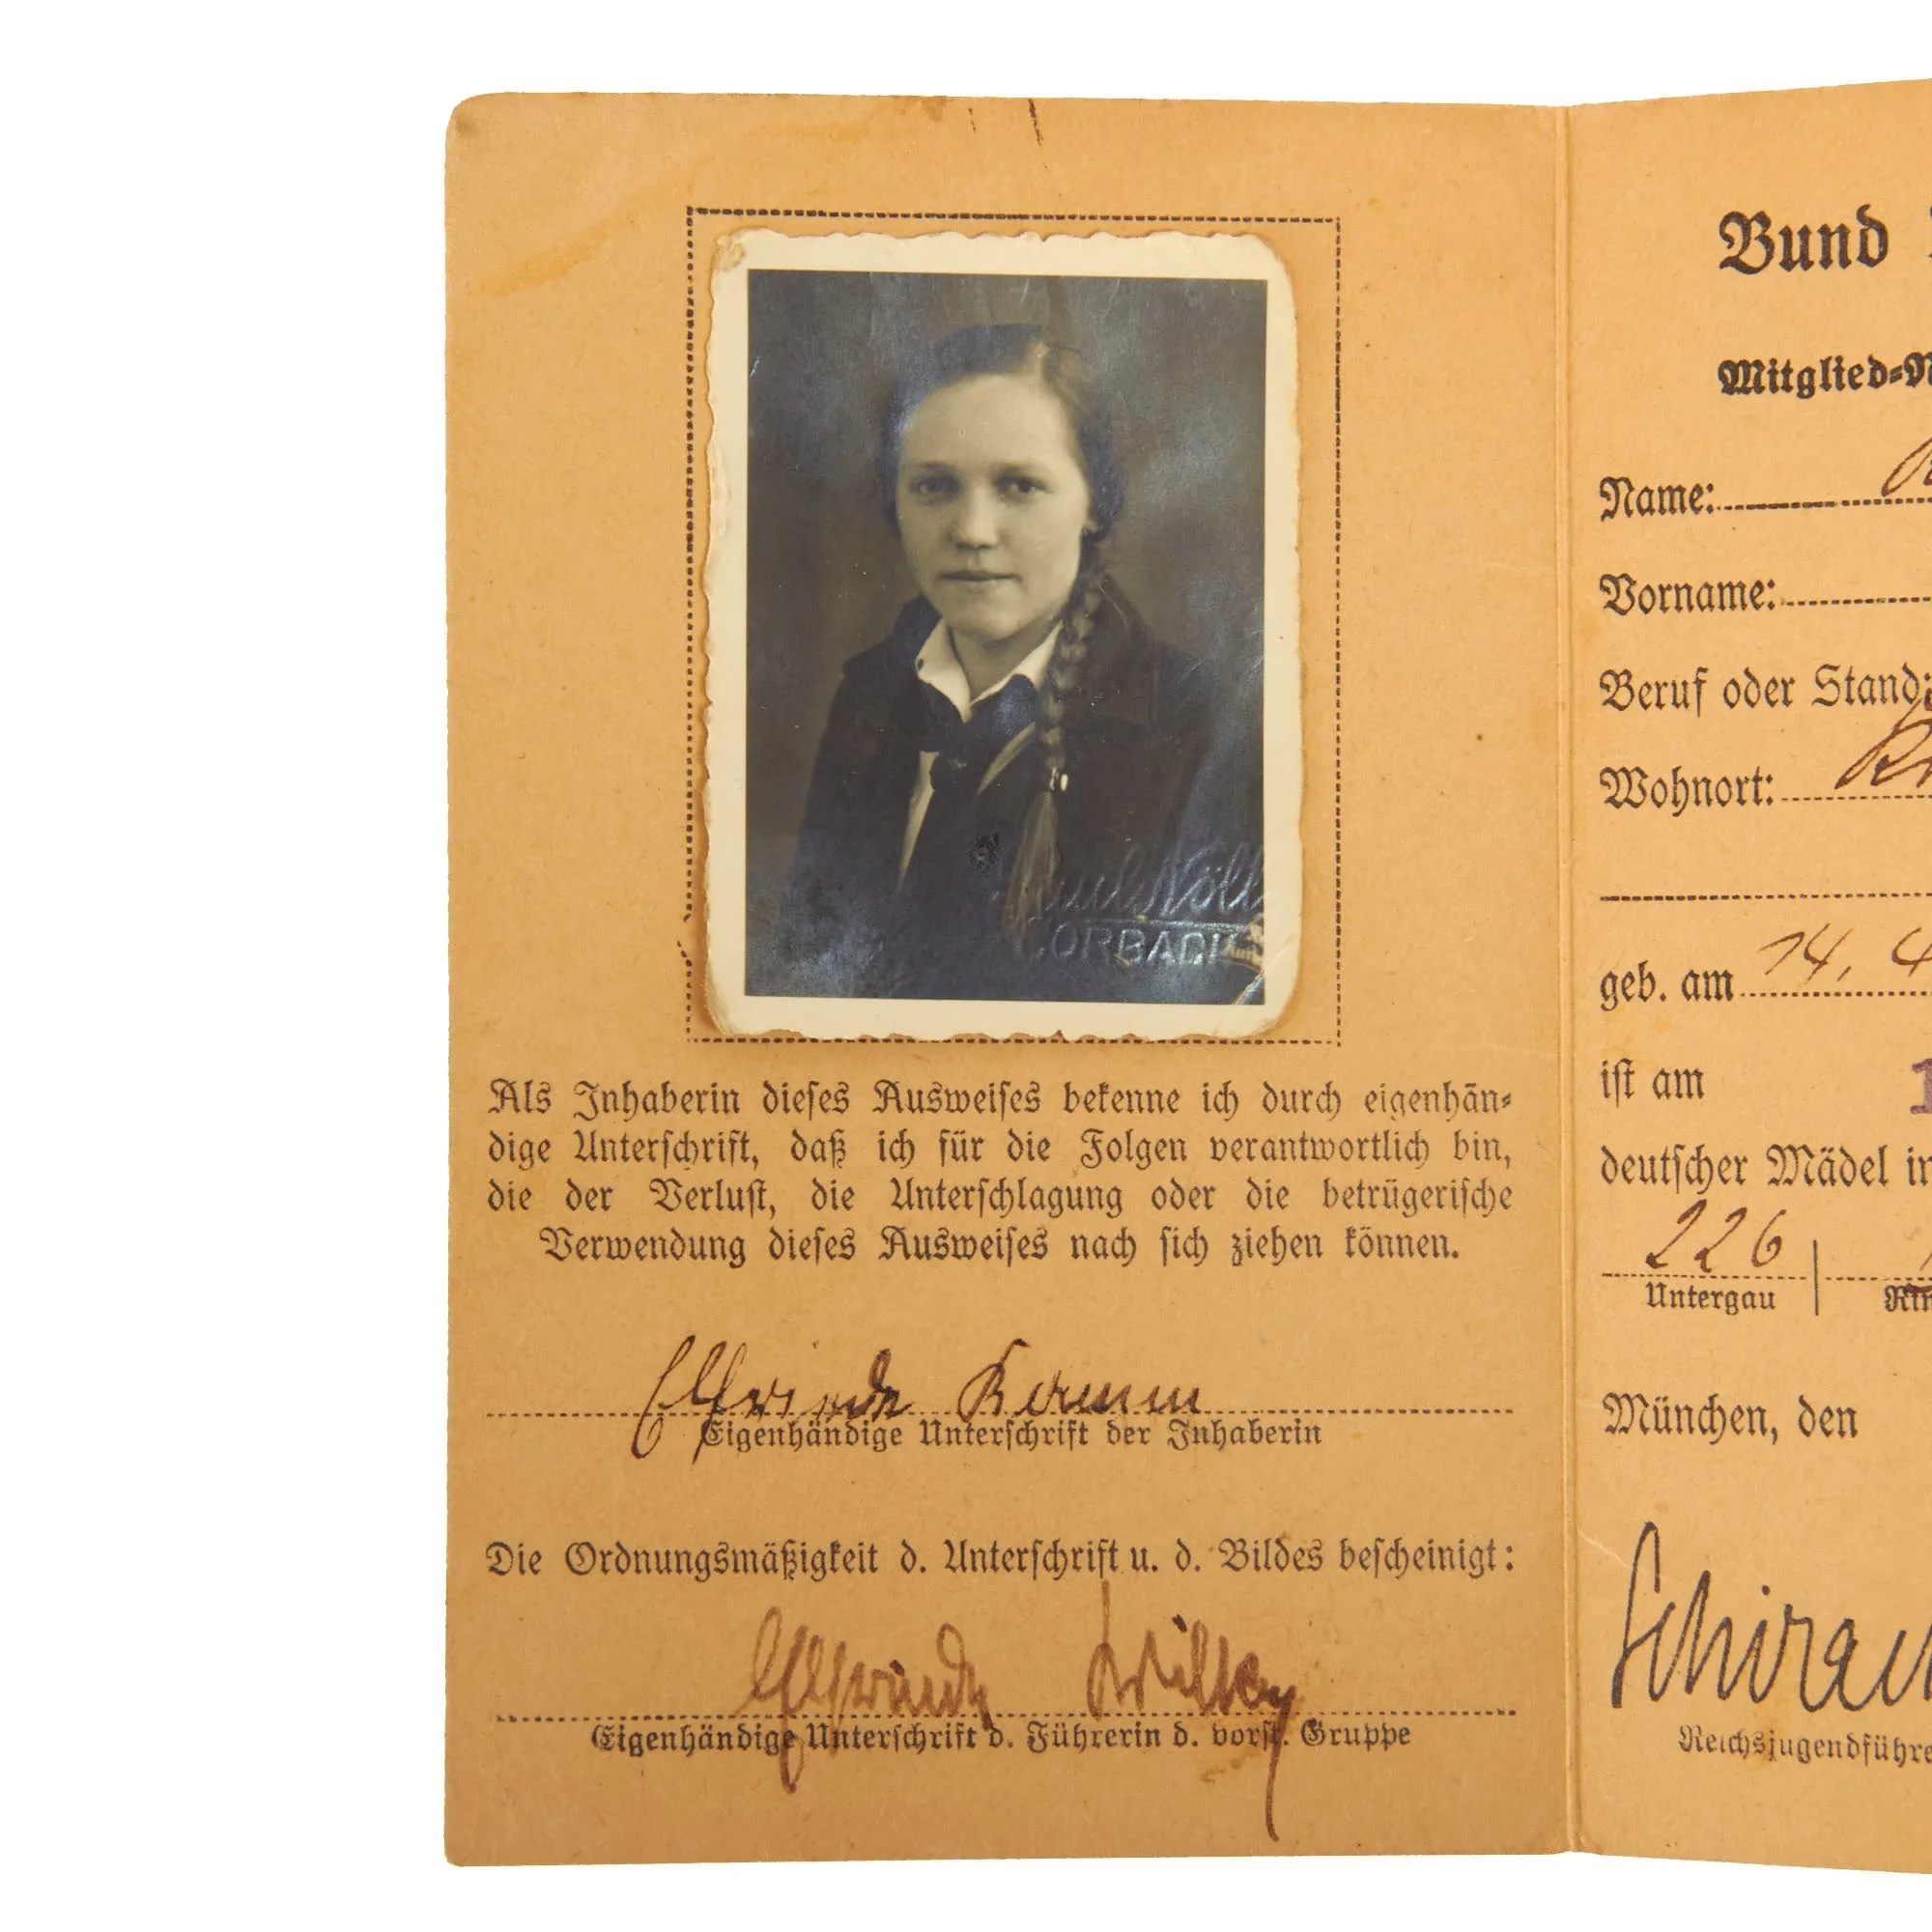 Paul Nöll
CORBACH
Als Inhaberin dieses Ausweises bekenne ich durch eigenhän-
dige Unterschrift, daß ich für die Folgen verantwortlich bin,
die der Verlust, die Unterschlagung oder die betrügerische
Verwendung dieses Ausweises nach sich ziehen können.
Elfriede
Eigenhändige Unterschrift der Inhaberin
Die Ordnungsmäßigkeit d. Unterschrift u. d. Bildes bescheinigt:
Elfriede
Eigenhändige Unterschrift d. Führerin d. vorst. Gruppe
Bund
Mitglied-N
Name:
Vorname:
Beruf oder Stand:
Wohnort:
geb. am 14. 4
ist am 1
deutscher Mädel in
226
Untergau
München, den
Schirach
Reichsjugendführe